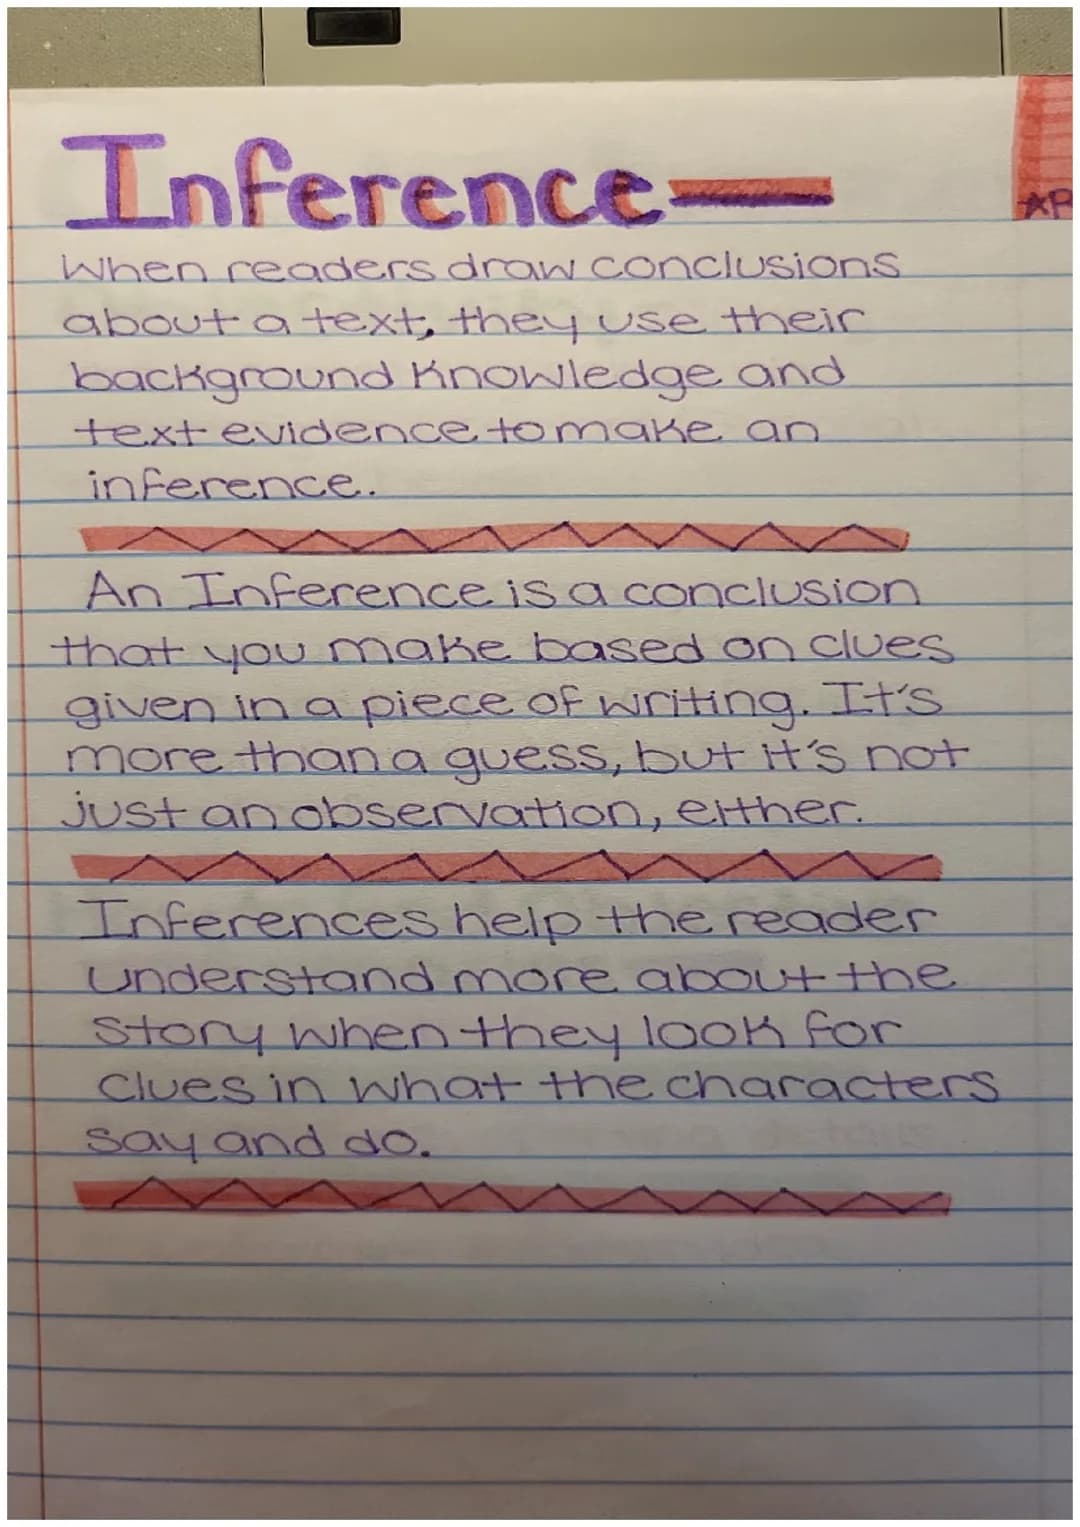 Inference—
When readers draw conclusions
about a text, they use their
background knowledge and
text evidence to make an
inference.
An Inference is a conclusion
that you make based on clues
given in a piece of writing. It's
more than a guess, but it's not
just an observation, either.
Inferences help the reader
understand more about the
story when they look for
clues in what the characters
say and do.